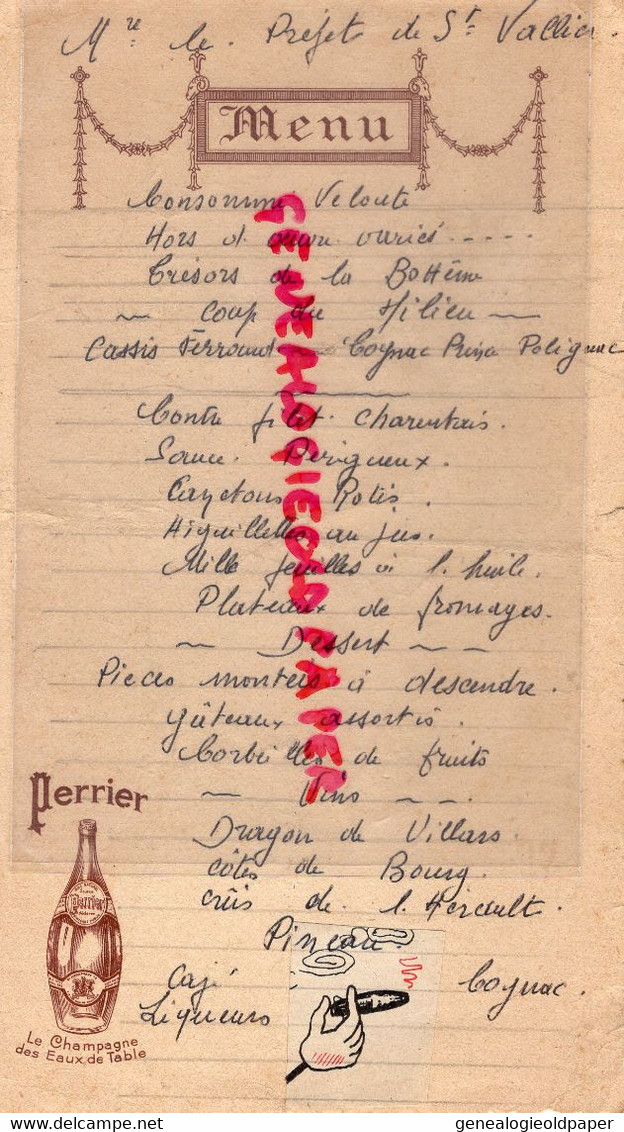 Mre le Préfet de St Vallier.
Menu
Consommé Velouté
Hors d'œuvre variés .....
Trésors de la Bohême
~ Coup du Milieu ~
Cassis Ferrand ~ Cognac Prince Polignac
Contre filet Charentais.
Sauce Périgueux.
Canetons Rotis.
Aiguillettes au jus.
Mille feuilles à l'huile.
Plateaux de fromages.
~ Dessert ~ ~
Pieces montées à descendre.
gâteaux assortis.
Corbeilles de fruits
~ Vins ~ ~.
Dragon de Villars.
côtes de Bourg.
crûs de l'Hérault.
Pineau.
Café Cognac.
Liqueurs
GENEALOGIEOLDPAPER
Perrier
Perrier
Le Champagne
des Eaux de Table
www.delcampe.net
genealogieoldpaper